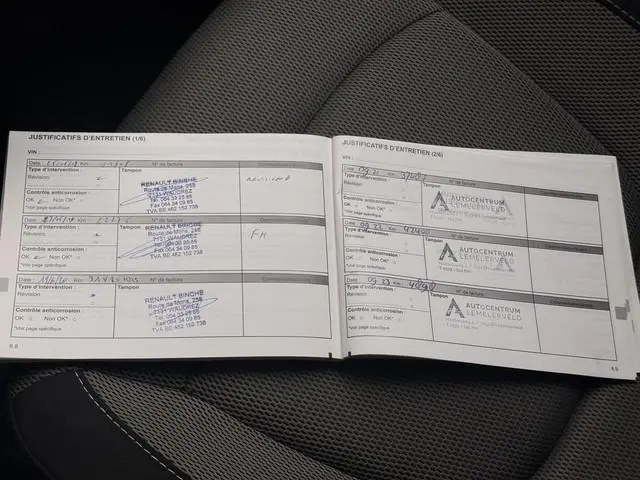 JUSTIFICATIFS D'ENTRETIEN (1/6)
VIN :
Date : Km N° de facture Commentaires
Type d'intervention : Tampon
Révision
RENAULT BINCHE
Route de Mons, 258
7131 WAUDREZ
Tel. 064 33 09 85
Fax 064 34 09 85
TVA BE 462 152 738
Contrôle anticorrosion :
OK Non OK*
*Voir page spécifique
Date : Km N° de facture Commentaires
Type d'intervention : Tampon
Révision
RENAULT BINCHE
Route de Mons, 258
7131 WAUDREZ
Tel. 064 33 09 85
Fax 064 34 09 85
TVA BE 462 152 738
FH
Contrôle anticorrosion :
OK Non OK*
*Voir page spécifique
Date : Km N° de facture Commentaires
Type d'intervention : Tampon
Révision
RENAULT BINCHE
Route de Mons, 258
7131 WAUDREZ
Tel. 064 33 09 85
Fax 064 34 09 85
TVA BE 462 152 738
Contrôle anticorrosion :
OK Non OK*
*Voir page spécifique
6.8
JUSTIFICATIFS D'ENTRETIEN (2/6)
VIN :
Km N° de facture Commentaires
Type d'intervention : Tampon
Révision
AUTOCENTRUM
LEMELERVELD
Contrôle anticorrosion :
OK Non OK*
*Voir page spécifique
09 22 Km 42400 N° de facture Commentaires
Type d'intervention : Tampon
Révision
AUTOCENTRUM
LEMELERVELD
Contrôle anticorrosion :
OK Non OK*
*Voir page spécifique
09 23 Km N° de facture Commentaires
Type d'intervention : Tampon
Révision
AUTOCENTRUM
LEMELERVELD
Contrôle anticorrosion :
OK Non OK*
*Voir page spécifique
6.9